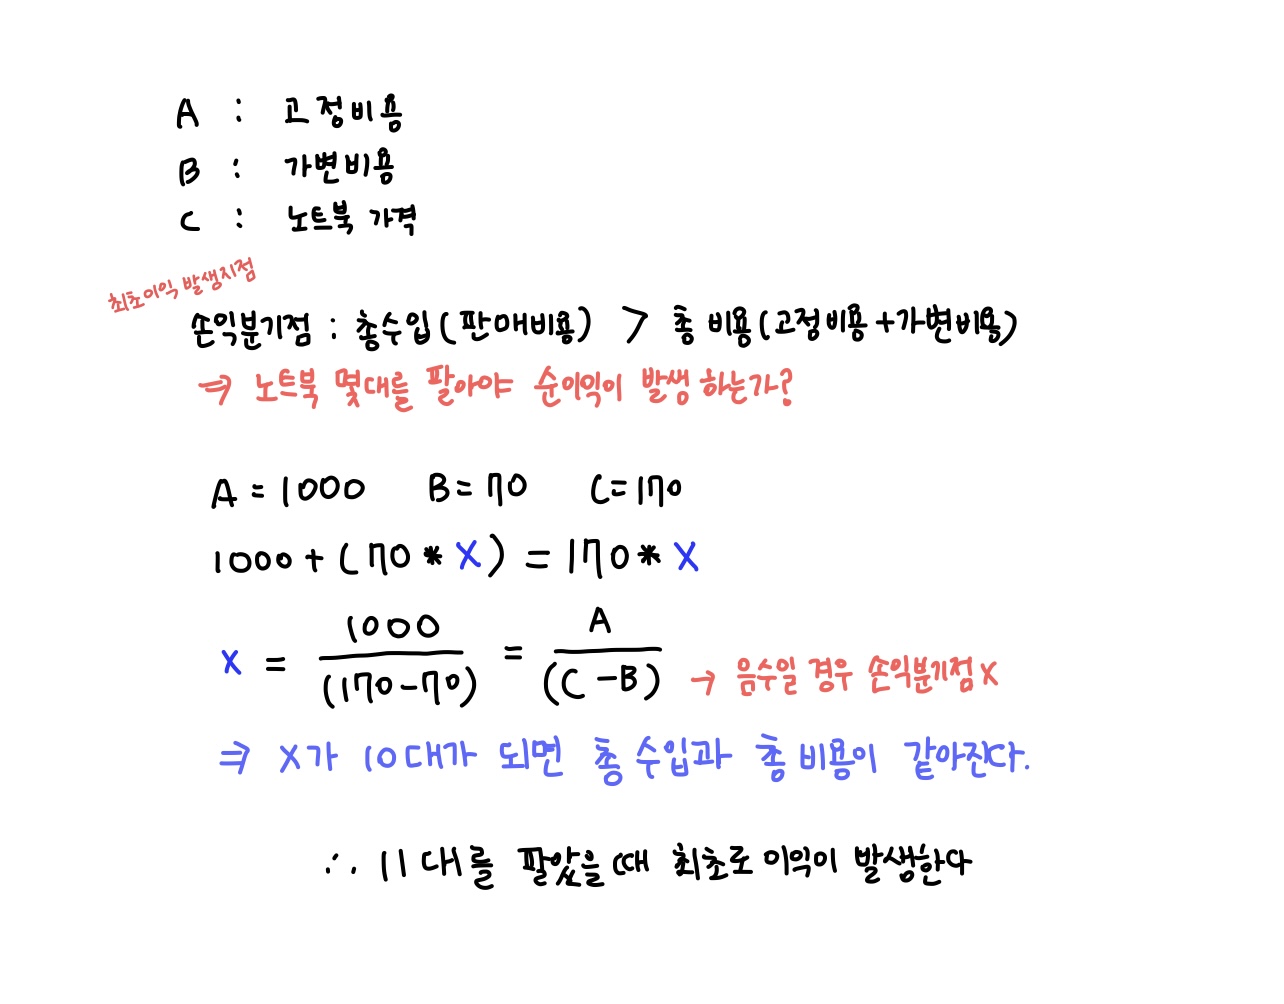 A : 고정비용
B : 가변비용
C : 노트북 가격
최초이익 발생지점
손익분기점 : 총수입(판매비용) > 총 비용(고정비용+가변비용)
⇒ 노트북 몇대를 팔아야 순이익이 발생 하는가?
A = 1000 B = 70 C = 170
1000 + (70 * X) = 170 * X
X = 1000 / (170-70) = A / (C-B) → 음수일 경우 손익분기점 X
⇒ X가 10대가 되면 총 수입과 총 비용이 같아진다.
∴ 11대를 팔았을때 최초로 이익이 발생한다